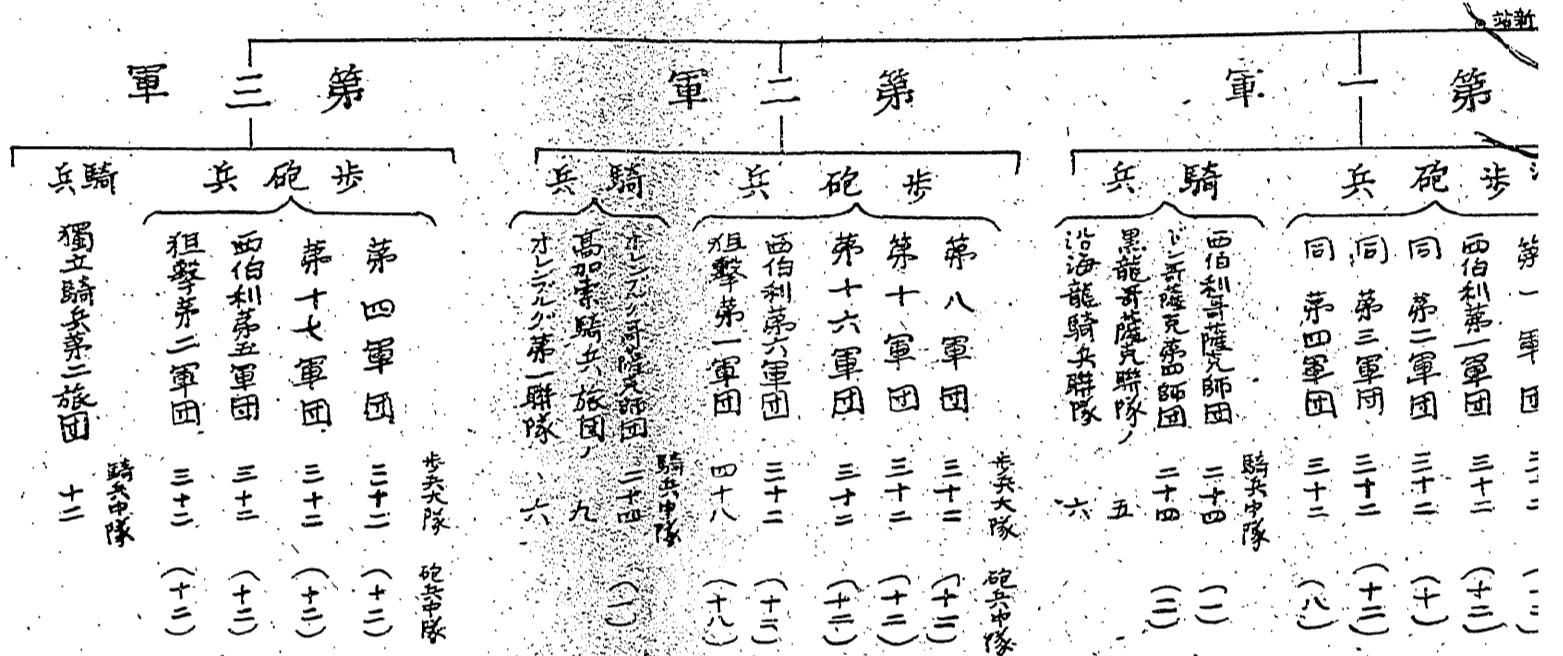 新站
第一軍
歩砲兵
第一軍団
西伯利第一軍団 三十二 (十二)
同 第二軍団 三十二 (十)
同 第三軍団 三十二 (十二)
同 第四軍団 三十二 (八)
騎兵
騎兵中隊
西伯利哥薩克師団 二十四 (一)
ドン哥薩克第四師団 二十四 (二)
黒龍哥薩克聯隊ノ 五
沿海龍騎兵聯隊 六
第二軍
歩砲兵
歩兵大隊 砲兵中隊
第八軍団 三十二 (十二)
第十軍団 三十二 (十二)
第十六軍団 三十二 (十二)
西伯利第六軍団 三十二 (十二)
狙撃第一軍団 四十八 (十八)
騎兵
騎兵中隊
オレンブルク哥薩克師団 二十四 (一)
高加索騎兵旅団ノ 九
オレンブルグ第一聯隊 六
第三軍
歩砲兵
歩兵大隊 砲兵中隊
第四軍団 三十二 (十二)
第十七軍団 三十二 (十二)
西伯利第五軍団 三十二 (十二)
狙撃第二軍団 三十二 (十二)
騎兵
騎兵中隊
獨立騎兵第二旅団 十二